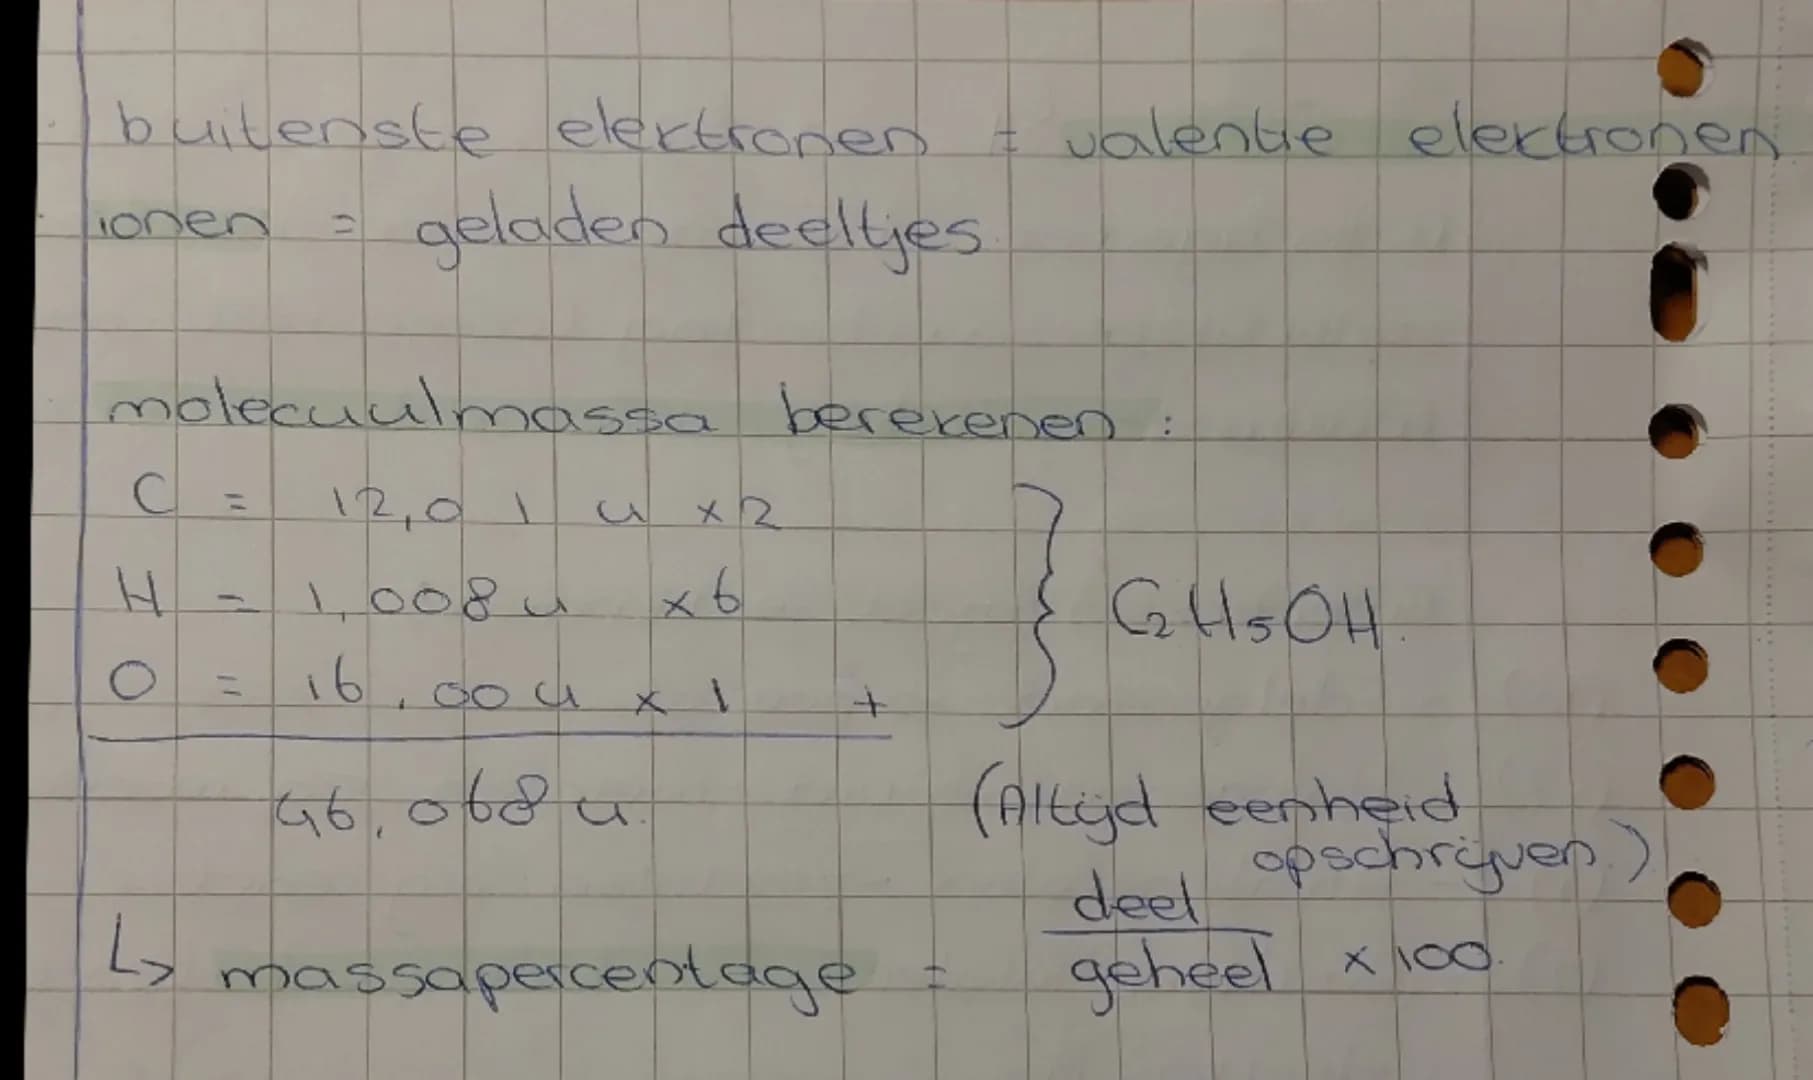 buitenste elektronen = valentie elektronen
ionen = geladen deeltjes
molecuulmassa berekenen :
C = 12,01 u x 2
H = 1,008 u x 6
O = 16,00 u x 1 +
} C₂H₅OH.
46,068 u.
(Altijd eenheid
opschrijven.)
deel
↳ massapercentage = geheel x 100.